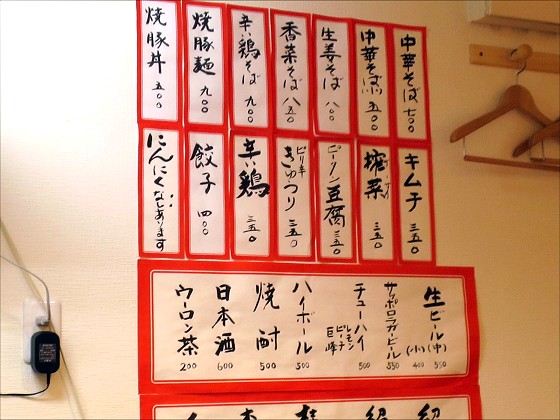 中華そば 七〇〇
中華そば(小) 五〇〇
生姜そば 八〇〇
香菜そば 八五〇
辛い鶏そば 九〇〇
焼豚麺 九〇〇
焼豚丼 五〇〇
キムチ 三五〇
搾菜 三五〇
ピータン豆腐 三五〇
ピリ辛きゅうり 三五〇
辛い鶏 三五〇
餃子 四〇〇
にんにくなしあります
生ビール (中) 550 (小) 400
サッポロラガービール 550
チューハイ レモン ピーチ 巨峰 500
ハイボール 500
焼酎 500
日本酒 600
ウーロン茶 200